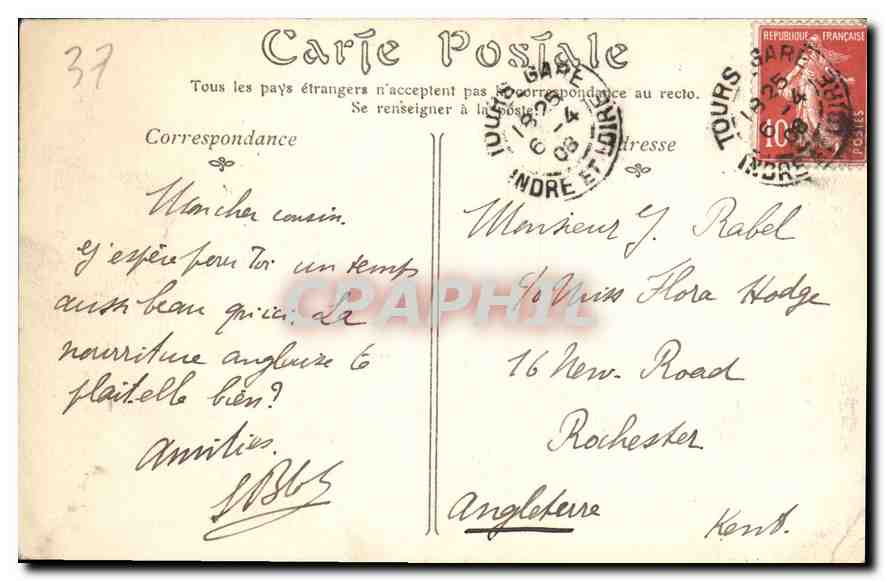 37
Carte Postale
Tous les pays étrangers n'acceptent pas la correspondance au recto.
Se renseigner à la poste.
Correspondance
Adresse
TOURS GARE
18 25
6 - 4
08
INDRE ET LOIRE
TOURS GARE
18 25
6 - 4
08
INDRE ET LOIRE
REPUBLIQUE FRANÇAISE
10
POSTES
Mon cher cousin.
J'espère pour Toi un temps
aussi beau qu'ici. La
nourriture anglaise te
plait-elle bien?
Amitiés.
Monsieur J. Rabel
c/o Miss Flora Hodge
16 New-Road
Rochester
Angleterre
Kent.
CPAPHIL